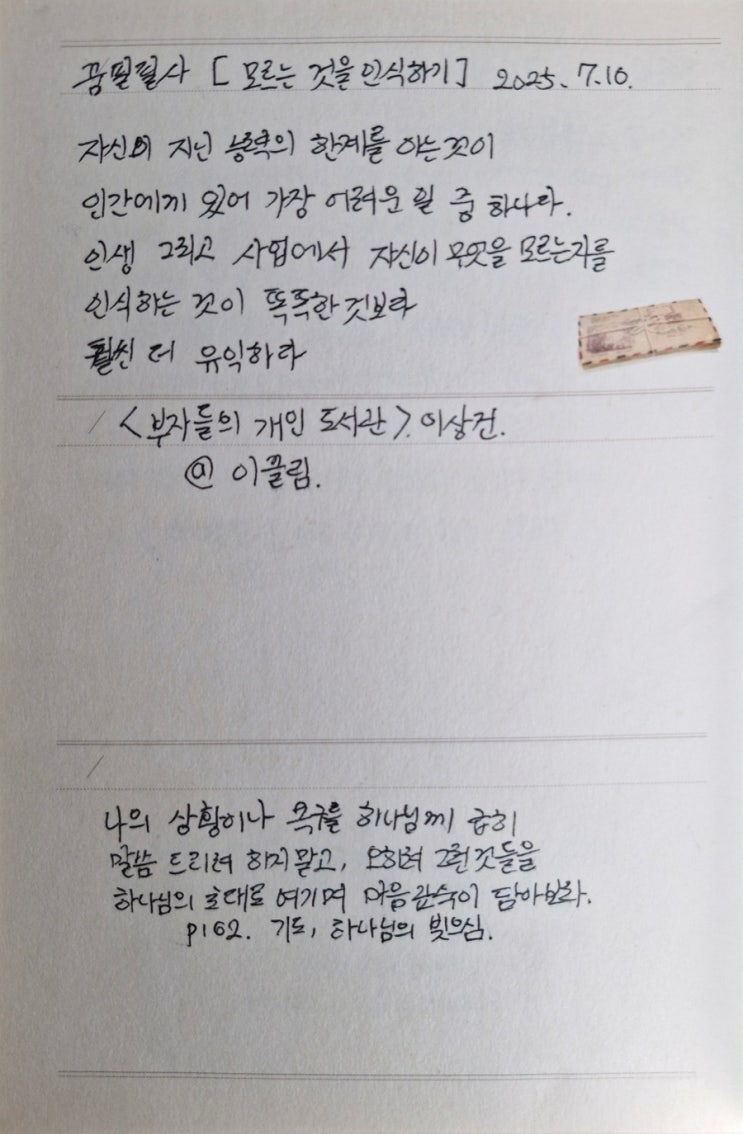 꿈필필사 [ 모르는 것을 인식하기 ] 2025. 7.10.
자신의 지닌 능력의 한계를 아는것이
인간에게 있어 가장 어려운 일 중 하나다.
인생 그리고 사업에서 자신이 무엇을 모르는지를
인식하는 것이 똑똑한것보다
훨씬 더 유익하다
/ <부자들의 개인 도서관>. 이상건.
@ 이끌림.
/
나의 상황이나 욕구를 하나님께 급히
말씀 드리려 하지말고, 오히려 그런것들을
하나님의 초대로 여기며 마음 깊숙이 담아보라.
p162. 기도, 하나님의 빚으심.